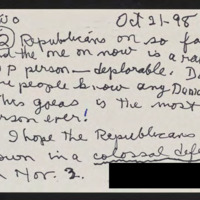 Oct 21-98
② Republicans on so fa
the one on now is a
p person — deplorable. D
people know any
This goeas is the most
erson ever!
I hope the Republicans
own in a colossal defe
n Nov. 3.